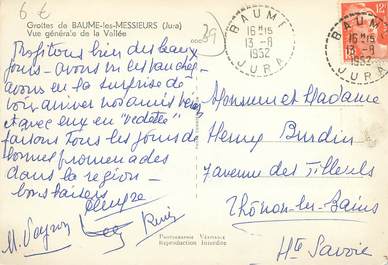 6 €
Grottes de BAUME-les-MESSIEURS (Jura)
Vue générale de la Vallée
39
BAUME
16H15
13-8
1952
JURA
BAUME
16H15
13-8
1952
JURA
12F
Profitons bien des beaux
jours - avons vu les
avons eu la surprise de
voir arriver nos amis
et avec eux en "vedette"
faisons tous les jours de
bonnes promenades
dans la région -
bons baisers
M. Veyron
Rémi
Monsieur et Madame
Henry Burdin
7 avenue des Tilleuls
Thônon-les-Bains
Hte Savoie
PHOTOGRAPHIE VÉRITABLE
Reproduction Interdite